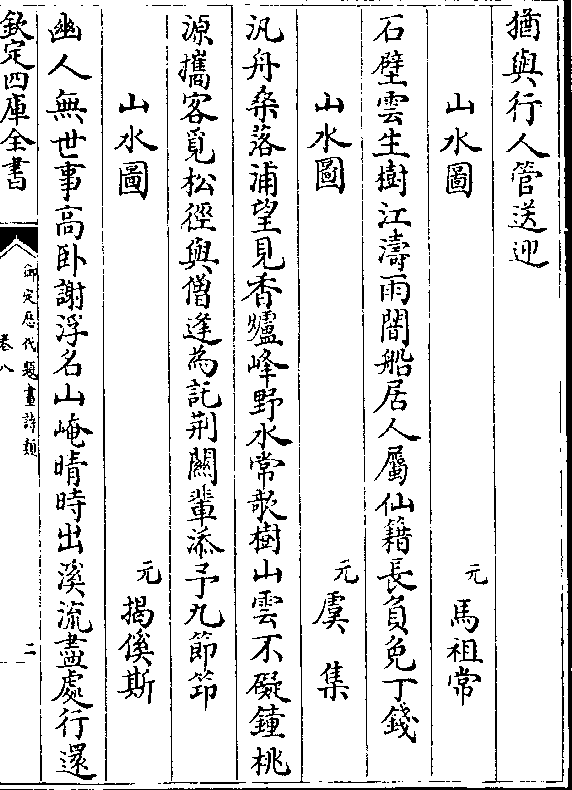 猶與行人管送迎
山水圖 元 馬祖常
石壁雲生樹江濤雨闇船居人屬仙籍長負免丁錢
山水圖 元 虞集
汎舟桑落浦望見香爐峰野水常欹樹山雲不礙鐘桃
源攜客覓松徑與僧逢為託荆關輩添予九節笻
山水圖 元 揭傒斯
幽人無世事高卧謝浮名山崦晴時出溪流盡處行還
欽定四庫全書
御定歷代題畫詩類
卷八
二